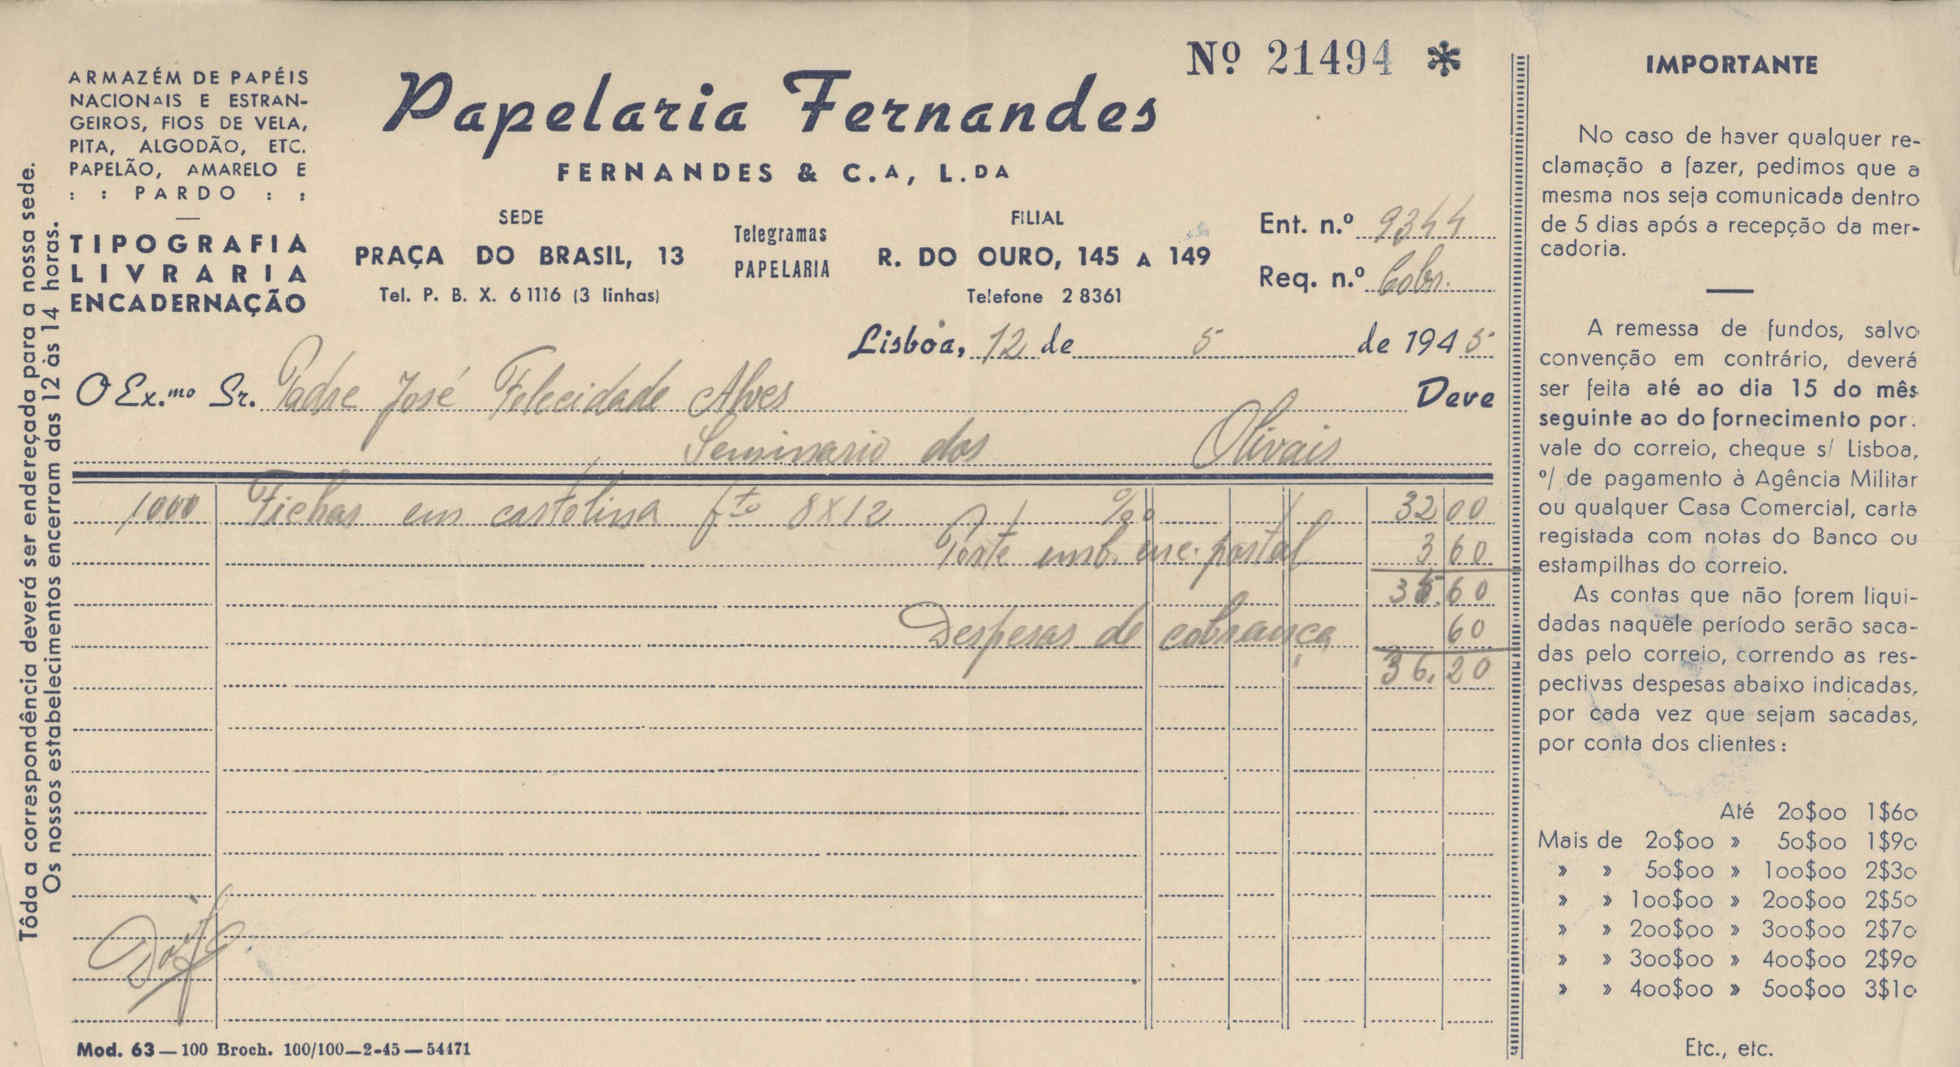 Nº 21494 *
ARMAZÉM DE PAPÉIS
NACIONAIS E ESTRAN-
GEIROS, FIOS DE VELA,
PITA, ALGODÃO, ETC.
PAPELÃO, AMARELO E
: : PARDO : :
TIPOGRAFIA
LIVRARIA
ENCADERNAÇÃO
Tôda a correspondência deverá ser endereçada para a nossa sede.
Os nossos estabelecimentos encerram das 12 às 14 horas.
Papelaria Fernandes
FERNANDES & C.A, L.DA
SEDE
PRAÇA DO BRASIL, 13
Tel. P. B. X. 61116 (3 linhas)
Telegramas
PAPELARIA
FILIAL
R. DO OURO, 145 A 149
Telefone 2 8361
Ent. n.º 9344
Req. n.º Cobr.
Lisboa, 12 de 5 de 1945
O Ex.mo Sr. Padre José Felecidade Alves Deve
Seminario dos Olivais
1000 Fichas em cartolina fto 8x12 % 32 00
Porte emb. enc. postal 3 60
35.60
Despesas de cobrança 60
36.20
Mod. 63 — 100 Broch. 100/100—2-45 — 54471
IMPORTANTE
No caso de haver qualquer re-
clamação a fazer, pedimos que a
mesma nos seja comunicada dentro
de 5 dias após a recepção da mer-
cadoria.
A remessa de fundos, salvo
convenção em contrário, deverá
ser feita até ao dia 15 do mês
seguinte ao do fornecimento por.
vale do correio, cheque s/ Lisboa,
º/ de pagamento à Agência Militar
ou qualquer Casa Comercial, carta
registada com notas do Banco ou
estampilhas do correio.
As contas que não forem liqui-
dadas naquele período serão saca-
das pelo correio, correndo as res-
pectivas despesas abaixo indicadas,
por cada vez que sejam sacadas,
por conta dos clientes:
Até 20$00 1$60
Mais de 20$00 » 50$00 1$90
» » 50$00 » 100$00 2$30
» » 100$00 » 200$00 2$50
» » 200$00 » 300$00 2$70
» » 300$00 » 400$00 2$90
» » 400$00 » 500$00 3$10
Etc., etc.